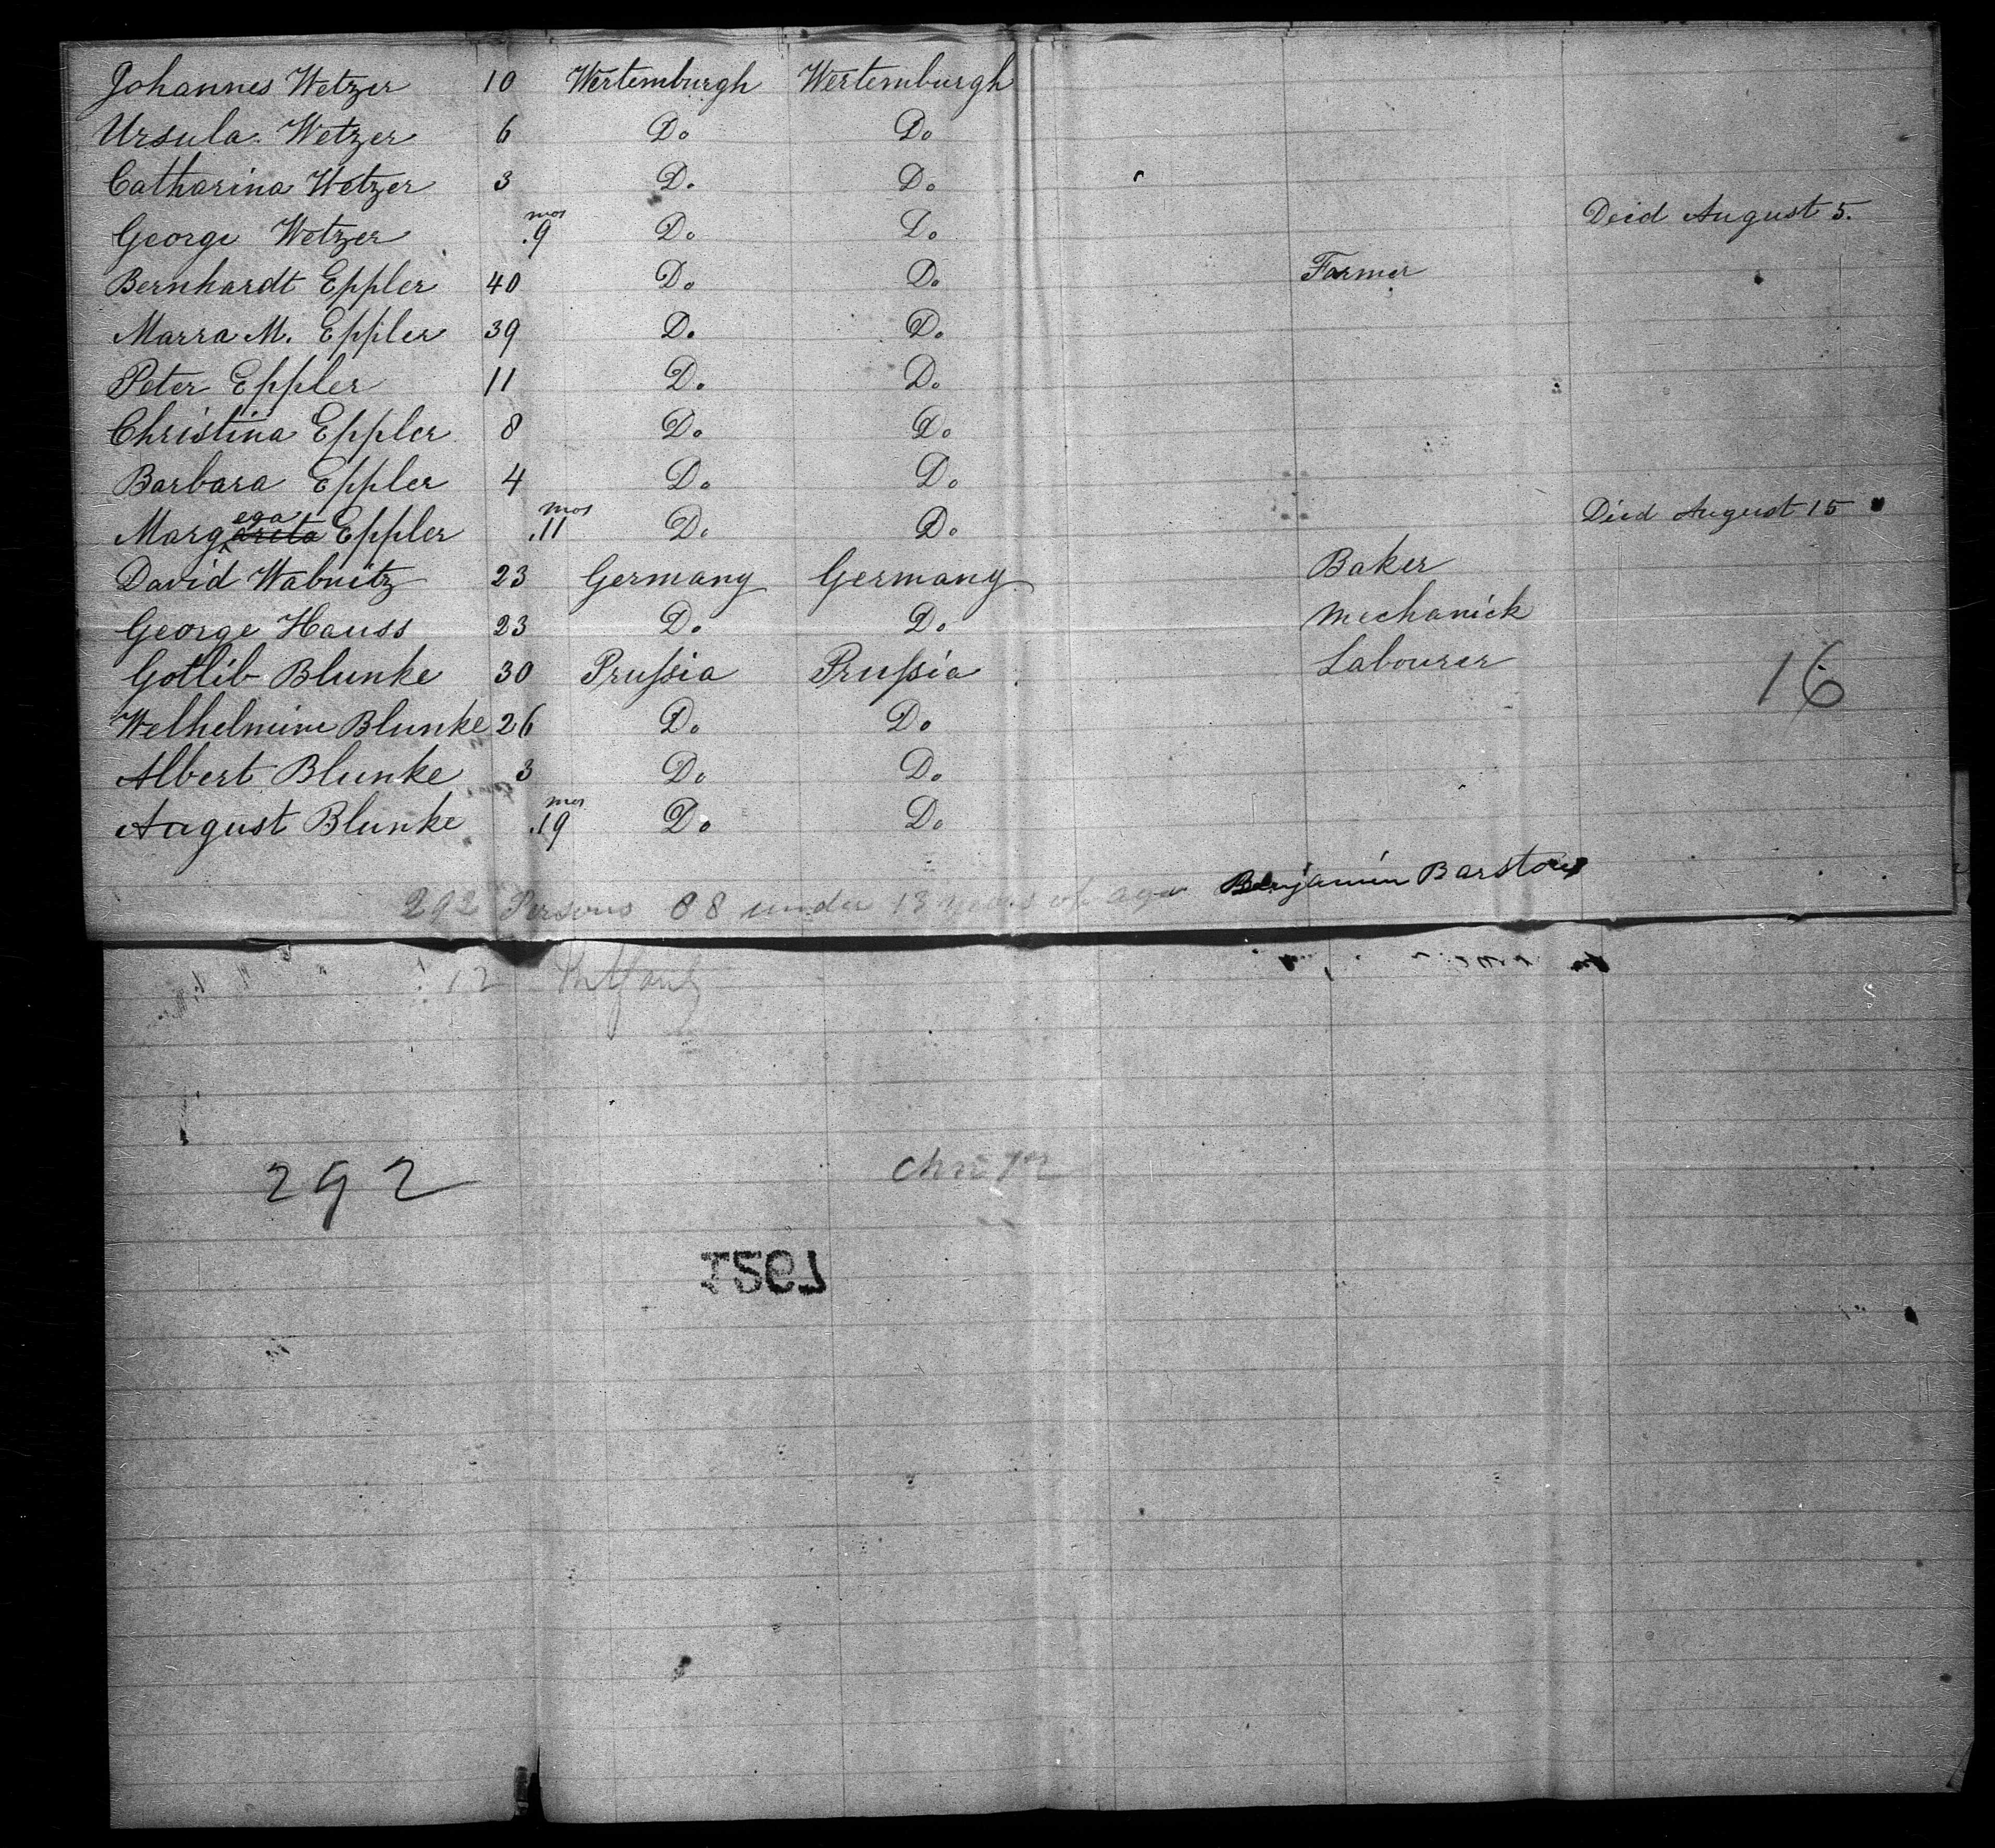 Johannes Wetzer 10 Wertemburgh Wertemburgh
Ursula Wetzer 6 Do Do
Catharina Wetzer 3 Do Do
George Wetzer .9 mos Do Do Deid August 5.
Bernhardt Eppler 40 Do Do Farmer
Marra M. Eppler 39 Do Do
Peter Eppler 11 Do Do
Christina Eppler 8 Do Do
Barbara Eppler 4 Do Do
Margarita Eppler .11 mos Do Do Died August 15
David Wabnitz 23 Germany Germany Baker
George Hauss 23 Do Do Mechanick
Gotlib Blunke 30 Prussia Prussia Labourer
16
Welhelmine Blunke 26 Do Do
Albert Blunke 3 Do Do
August Blunke .19 mos Do Do
292 Persons 88 under 13 years of age Benjamin Barstow
12
292
1521